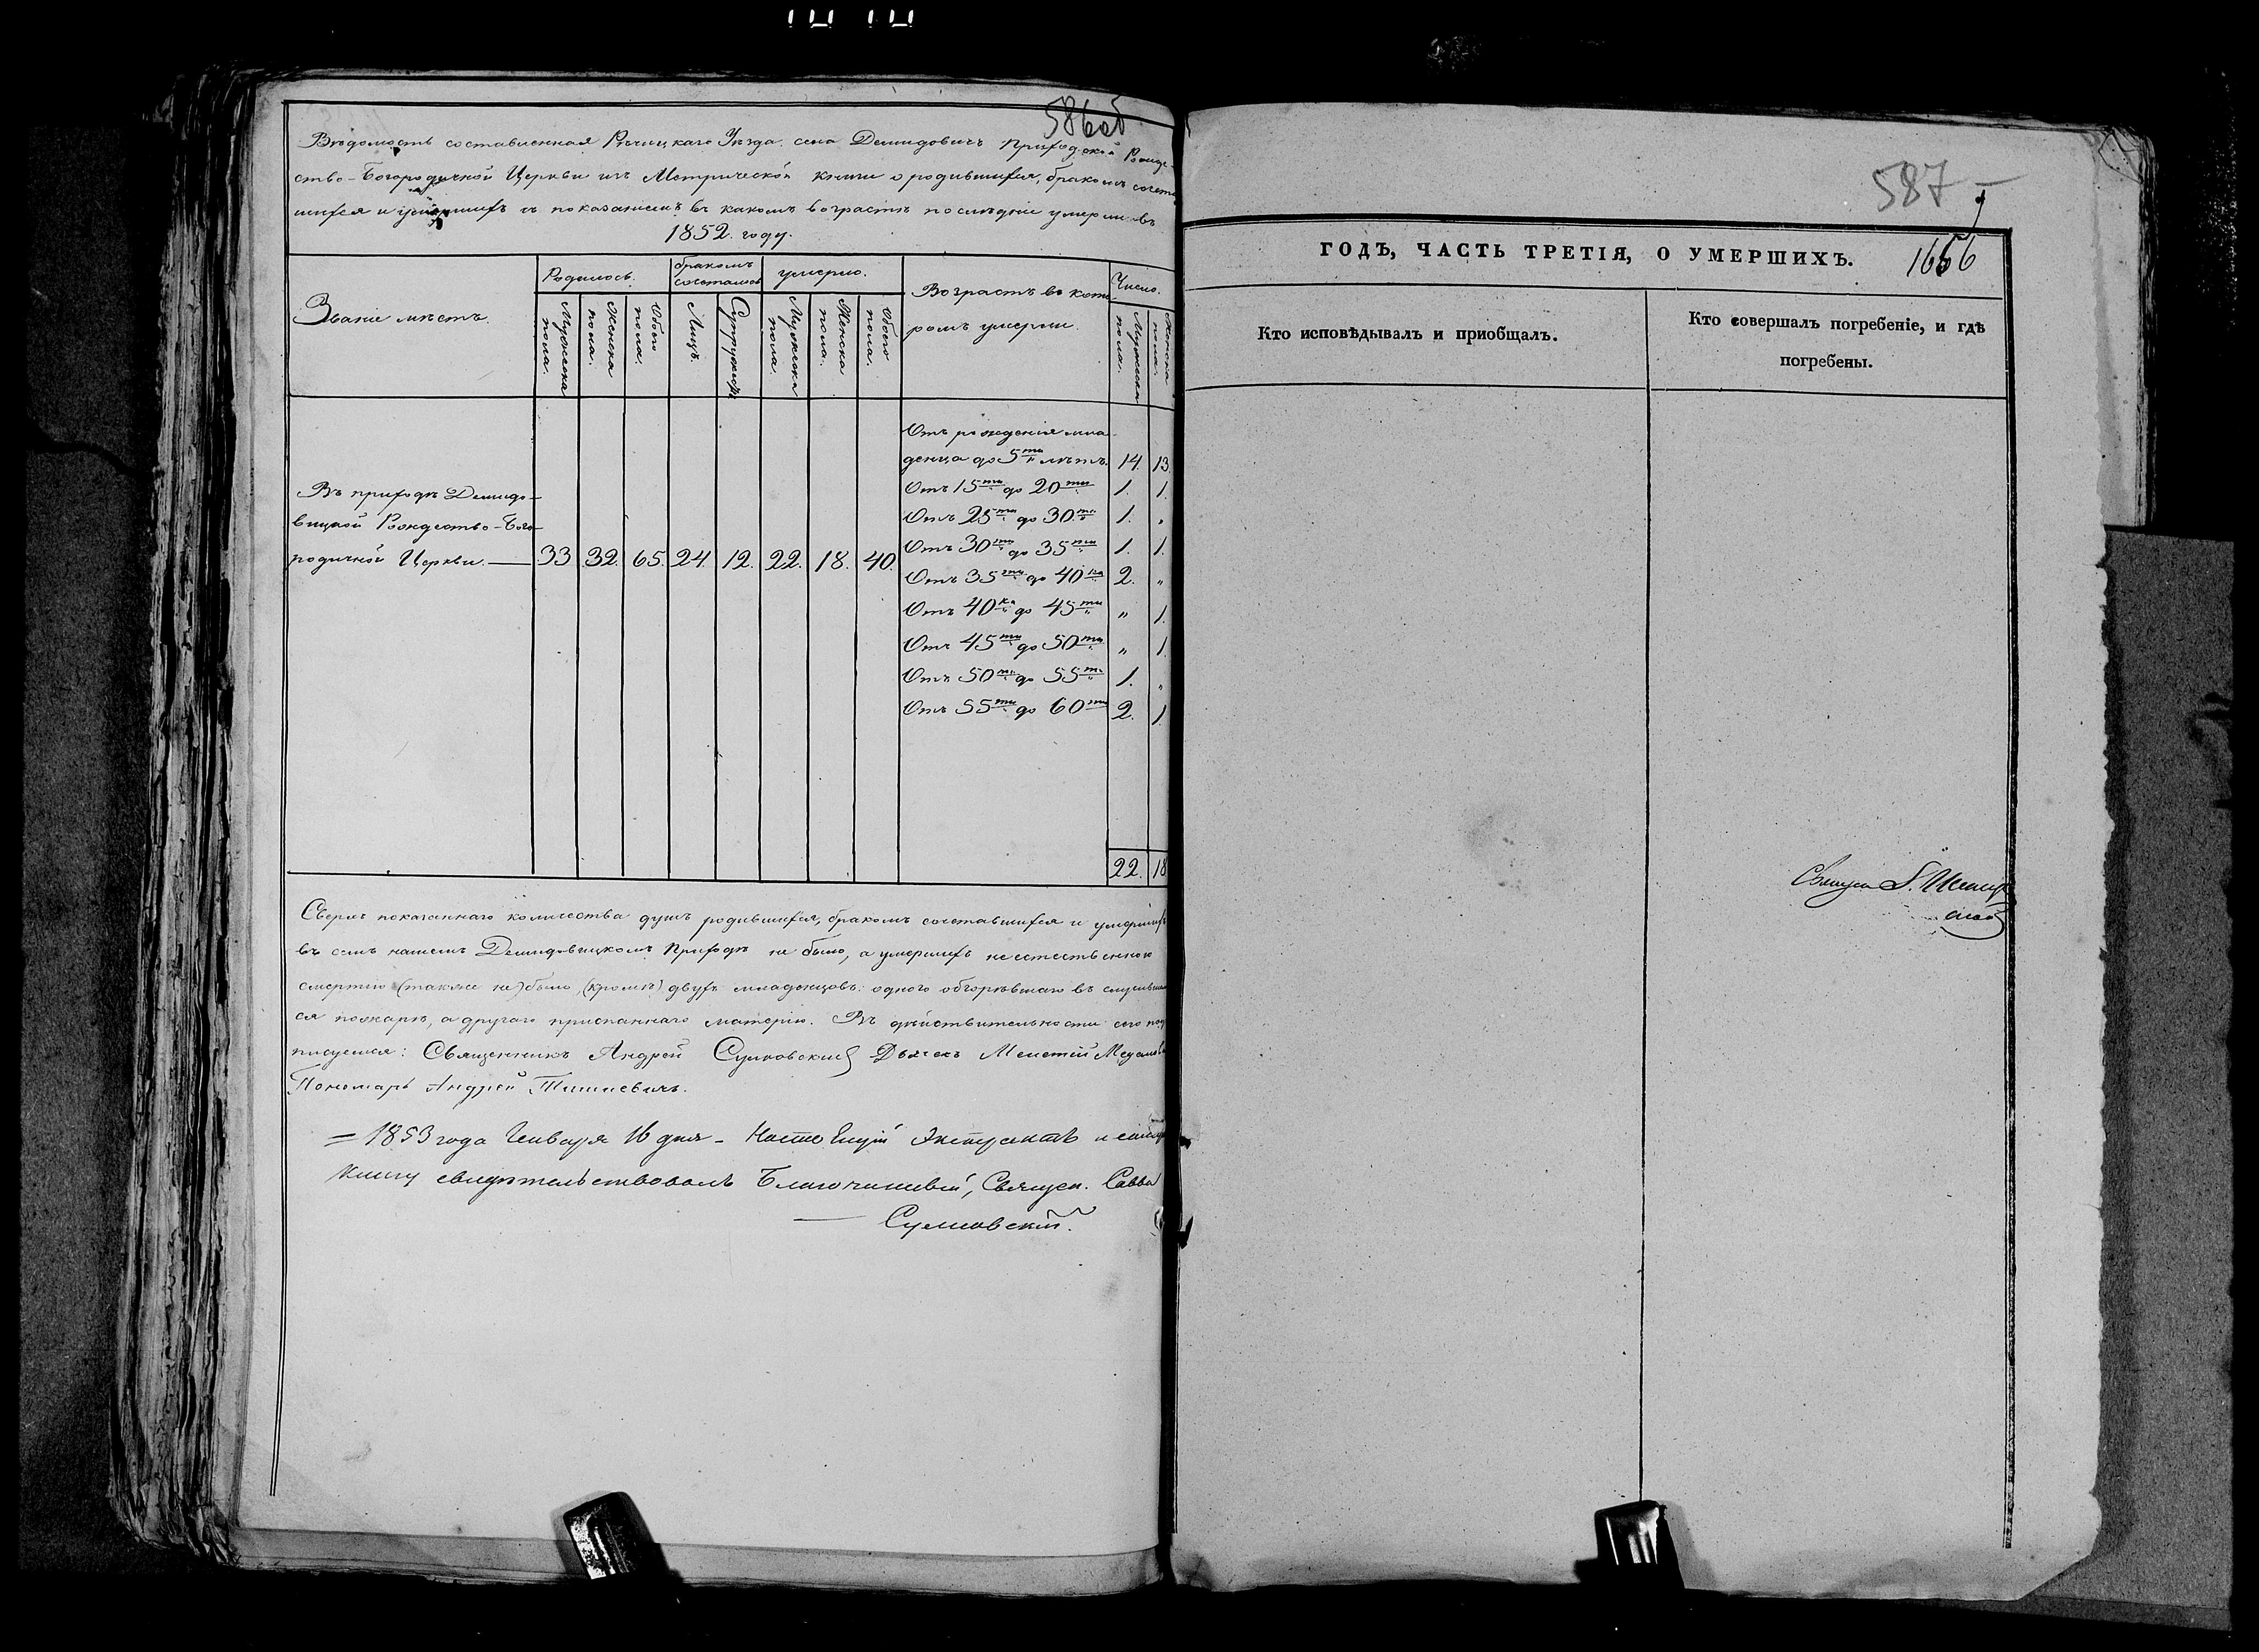 586об
Вѣдомость составленная Рѣчицкаго Уѣзда села Демидовичъ Приходской Рожде-
ство-Богородичной Церкви изъ Метрической книги о родившихся, бракомъ сочетав
шихся и умершихъ съ показаніемъ въ какомъ возрастѣ послѣдніе умерли въ
1852. году.
Званіе мѣстъ. Родилось. бракомъ сочеталось умерло. Возрастъ въ кото- ромъ умерли. Число.
Мужеска пола. Женска пола. Обоего пола. Лицъ. Супружествъ Мужеска пола. Женска пола. Обоего пола. Мужеска пола. Женска пола.
Отъ рожденія мла-
денца до 5ти лѣтъ. 14. 13.
Отъ 15ти до 20ти 1. 1.
Отъ 25ти до 30ти 1. "
Отъ 30ти до 35ти 1. 1.
Отъ 35ти до 40ка 2. "
Отъ 40ка до 45ти " 1.
Отъ 45ти до 50ти " 1.
Отъ 50ти до 55ти 1. "
Отъ 55ти до 60ти 2. 1.
Въ приходѣ Демидо-
вицкой Рождество-Бого-
родичной Церкви. 33 32. 65. 24. 12. 22. 18. 40.
22. 18
Сверхъ показаннаго количества душъ родившихся, бракомъ сочетавшихся и умершихъ
въ семъ нашемъ Демидовицкомъ Приходѣ не было, а умершихъ неестественною
смертію (также не) было, (кромѣ) двухъ младенцовъ: одного обгорѣвшаго въ случившем
ся пожарѣ, а другаго приспаннаго матерію. Въ дѣйствительности сего под
писуемся: Священникъ Андрей Сулковскій Дьячекъ Мелетій
Пономарь Андрей
1853 года Генваря 16 дня - Настоящій Экстрактъ и самую
книгу свидѣтельствовалъ Благочинный, Священ. Савва
Сулковскій.
587
1656
ГОДЪ, ЧАСТЬ ТРЕТІЯ, О УМЕРШИХЪ.
Кто исповѣдывалъ и пріобщалъ.
Кто совершалъ погребеніе, и гдѣ
погребены.